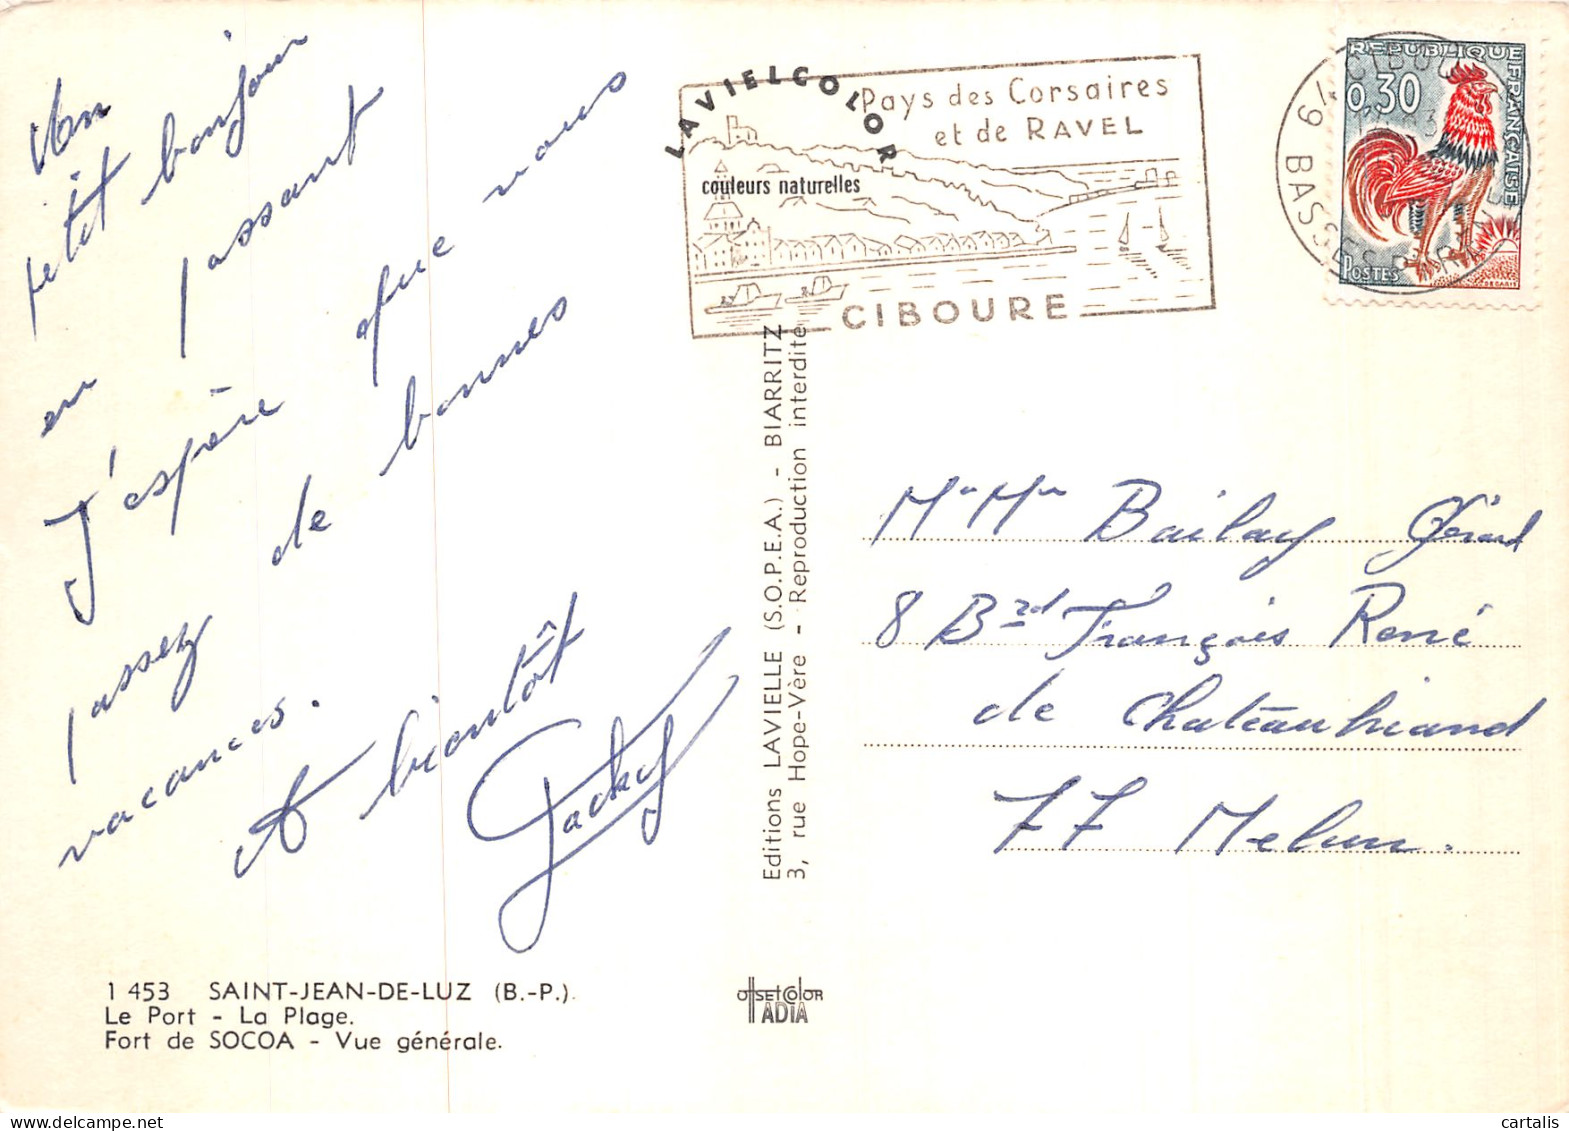 Un
petit bonjour
en passant
J'espère que vous
passez de bonnes
vacances.
A bientôt
Jacky
1 453 SAINT-JEAN-DE-LUZ (B.-P.).
Le Port - La Plage.
Fort de SOCOA - Vue générale.
LAVIELCOLOR
couleurs naturelles
Pays des Corsaires
et de RAVEL
CIBOURE
Editions LAVIELLE (S.O.P.E.A.) - BIARRITZ
3, rue Hope-Vère - Reproduction interdite
offsetcolor
IADIA
REPUBLIQUE FRANÇAISE
0,30
POSTES
DECARIS
BASSES
Mr Mme Bailay Gérard
8 Brd François René
de Chateaubriand
77 Melun.
cartalis